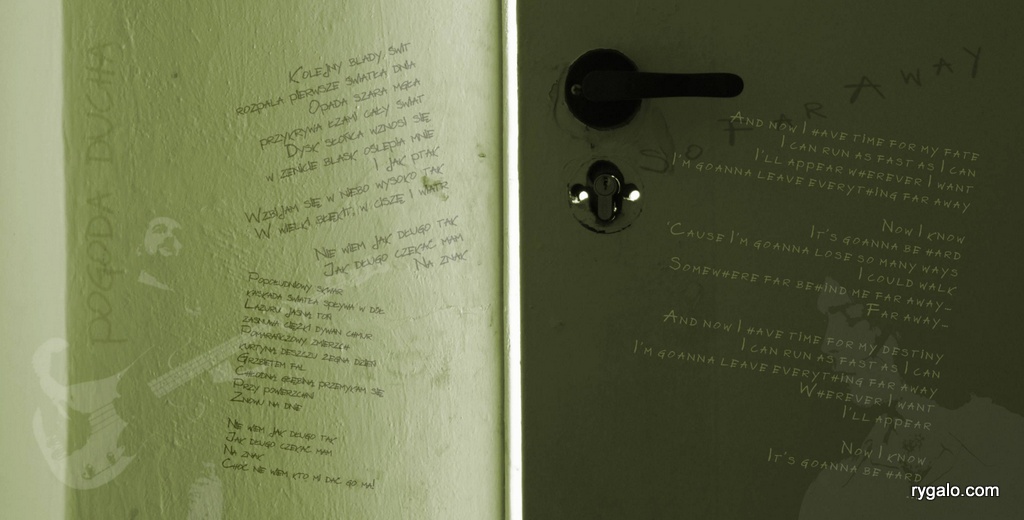 POGODA DUCHA
KOLEJNY BLADY ŚWIT
ROZPALA PIERWSZE ŚWIATŁA DNIA
OPADA SZARA MGŁA
PRZYKRYWA ŁZAMI CAŁY ŚWIAT
DYSK SŁOŃCA WZNOSI SIĘ
W ZENICIE BLASK OŚLEPIA MNIE
I JAK PTAK
WZBIJAM SIĘ W NIEBO WYSOKO TAK
W WIELKI BŁĘKIT, W CISZĘ I WIATR
NIE WIEM JAK DŁUGO TAK
JAK DŁUGO CZEKAĆ MAM
NA ZNAK
POPOŁUDNIOWY SKWAR
KASKADA ŚWIATŁA SPŁYWA W DÓŁ
LAZURU JASNĄ TOŃ
ZASNUWA CIĘŻKI DYWAN CHMUR
POMARAŃCZOWY ZMIERZCH
KURTYNĄ DESZCZU ŻEGNA DZIEŃ
GRZBIETEM FAL
PRZEMYKAM SIĘ
PRZY POWIERZCHNI
ZNOWU NA DNIE
NIE WIEM JAK DŁUGO TAK
JAK DŁUGO CZEKAĆ MAM
NA ZNAK
CHOĆ NIE WIEM KTO MI DAĆ GO MA!
SO FAR AWAY
AND NOW I HAVE TIME FOR MY FATE
I CAN RUN AS FAST AS I CAN
I'LL APPEAR WHEREVER I WANT
I'M GOANNA LEAVE EVERYTHING FAR AWAY
NOW I KNOW
IT'S GOANNA BE HARD
'CAUSE I'M GOANNA LOSE SO MANY WAYS
I COULD WALK
SOMEWHERE FAR BEHIND ME FAR AWAY-
FAR AWAY-
AND NOW I HAVE TIME FOR MY DESTINY
I CAN RUN AS FAST AS I CAN
I'M GOANNA LEAVE EVERYTHING FAR AWAY
WHEREVER I WANT
I'LL APPEAR
NOW I KNOW
IT'S GOANNA BE HARD
rygalo.com